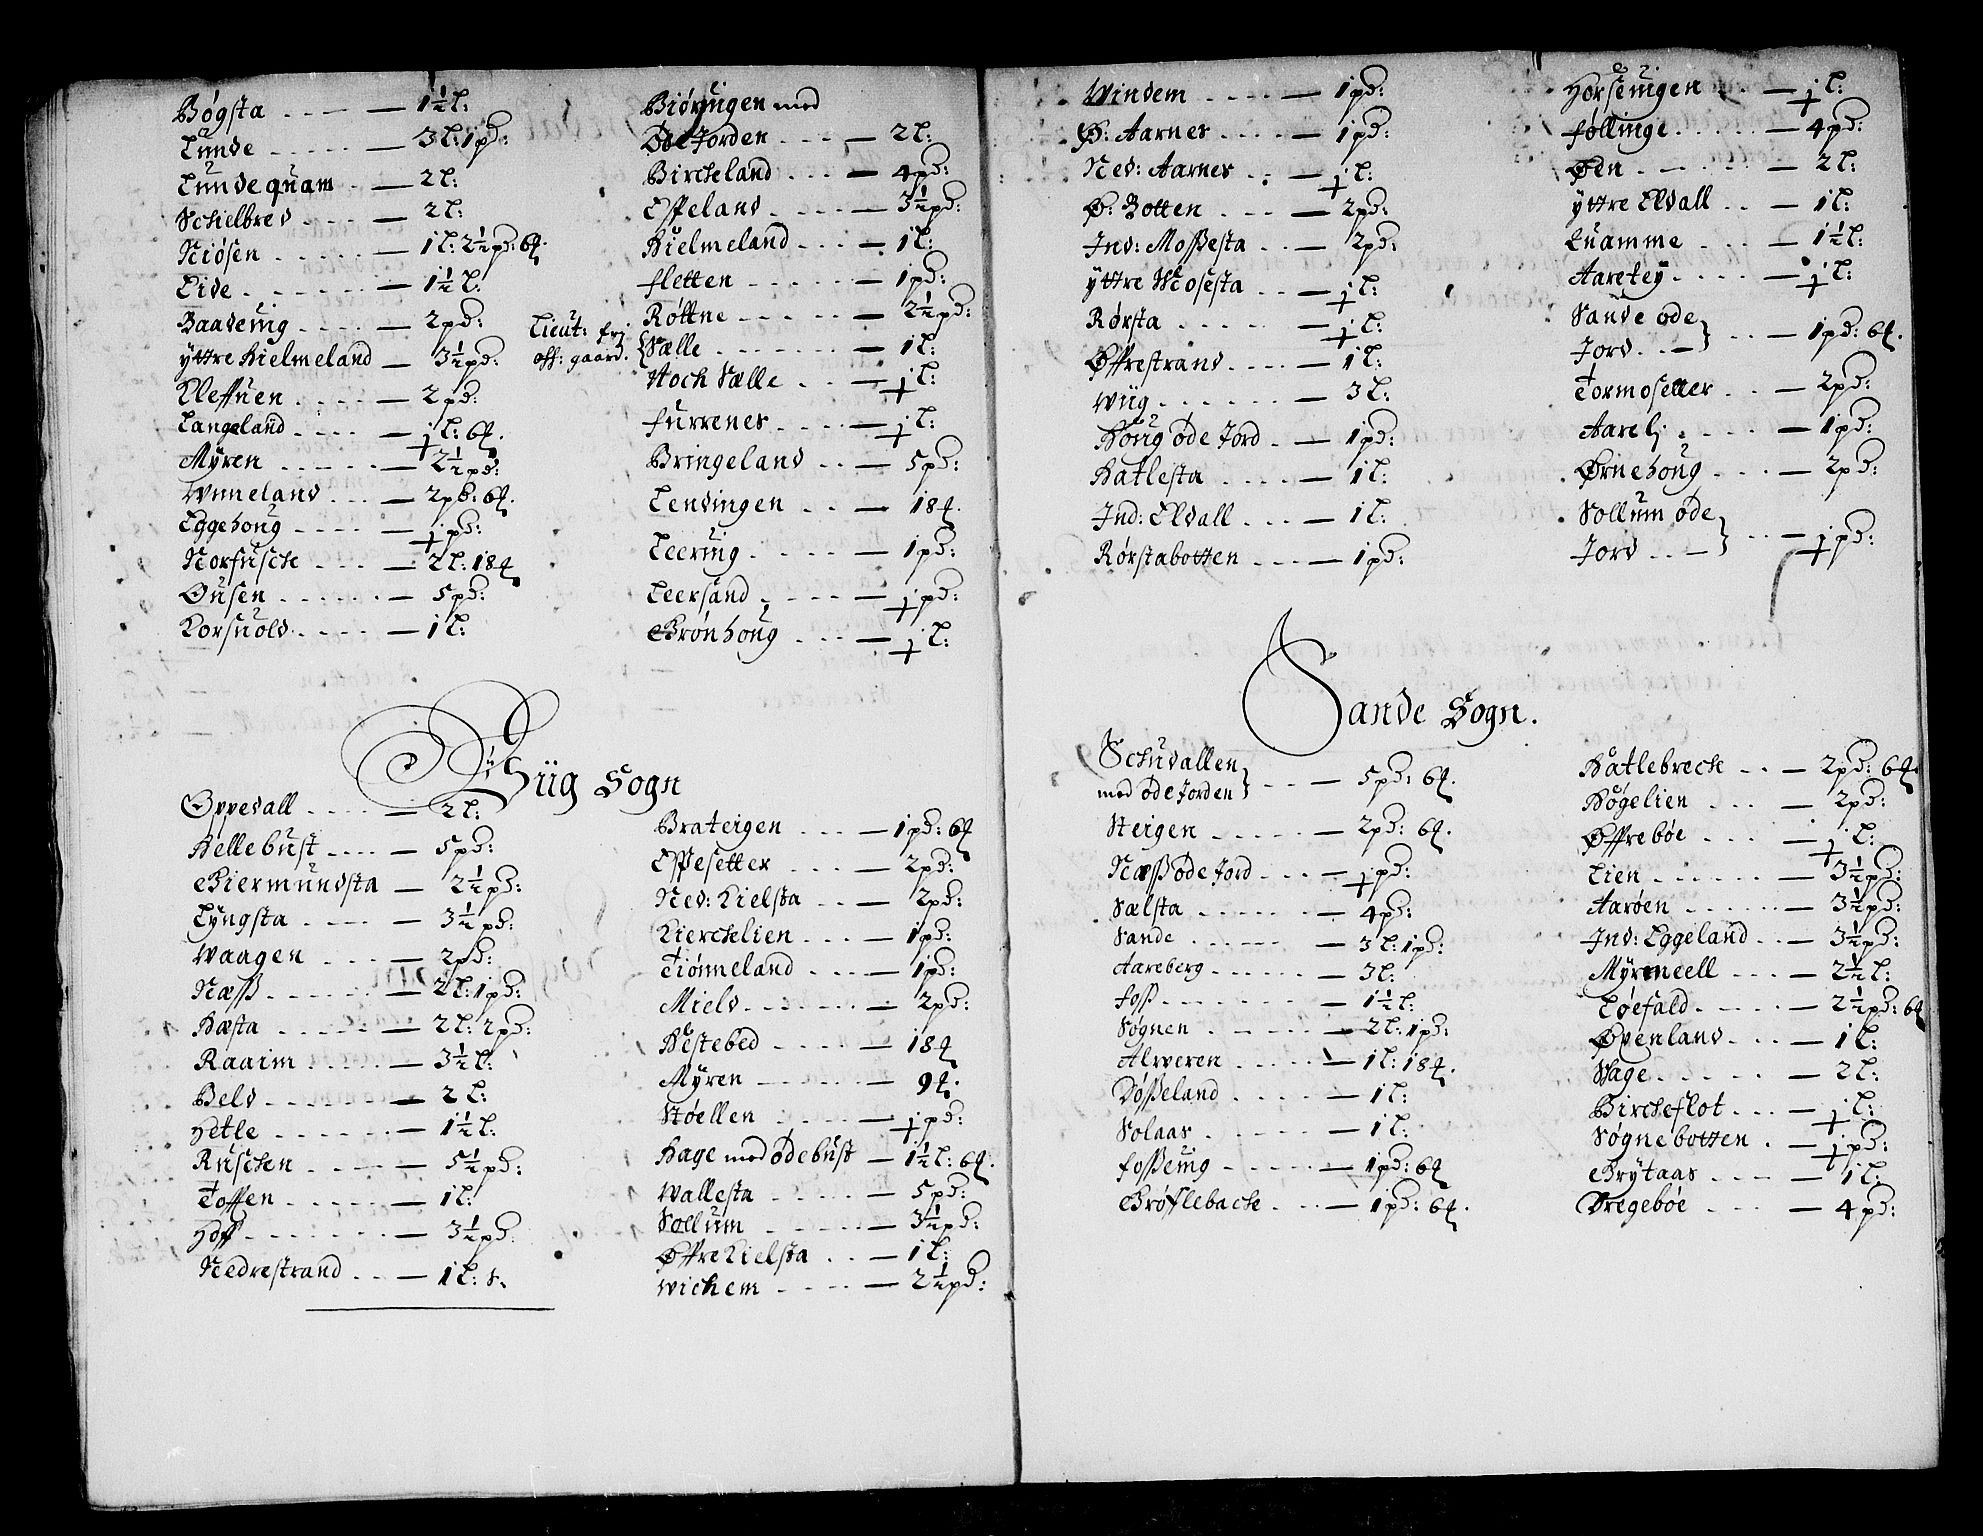 Bøgsta - - - - 1½ L:
Lunde - - - - 3 L: 1 pd:
Lundequam - - 2 L:
Schielbred - - - 2 L:
Niøsen - - - - 1 L: 2½ pd: 6 ℳ.
Eide - - - - - 1½ L:
Baadeing - - - - 2 pd:
yttre Hielmeland - 3½ pd:
Kleffuen - - - - 2 pd:
Langeland - - - - ½ L: 6 ℳ.
Myren - - - - - 2½ pd:
Wnneland - - - 2 pd: 6 ℳ.
Eggehoug - - - - ½ pd:
Norfusche - - - 2 L: 18 ℳ
Ousen - - - - - 5 pd:
Korsuold - - - - 1 L:
Biøringen med
Øde Jorden - - - - 2 L:
Bircheland - - - 4 pd:
Espeland - - - - 3½ pd:
Hielmeland - - - 1 L:
fletten - - - - - 1 pd:
Røttne - - - - - 2½ pd:
Lieut: fri
off: gaard.
Sælle - - - - - 1 L:
Noch Sælle - - - ½ L:
furrenes - - - - ½ L:
Bringeland - - - 5 pd:
Lendingen - - - 18 ℳ.
Leering - - - - 1 pd:
Leersand - - - - ½ pd:
Grønhoug - - - ½ L:
Wiig Sogn
Oppedall - - - - 2 L:
Hellebust - - - - 5 pd:
Giermundsta - 2½ pd:
Lyngsta - - - - 3½ pd:
Waagen - - - - 2 pd:
Næss - - - - - 2 L: 1 pd:
Hæsta - - - - - 2 L: 2 pd:
Raaim - - - - - 3½ L:
Beld - - - - - - 2 L:
Hetle - - - - - - 1½ L:
Ruschen - - - - 5½ pd:
Toffen - - - - - 1 L:
Hoff - - - - - - 3½ pd:
Nedrestrand - - - 1 L:
Brateigen - - - - 1 pd: 6 ℳ
Espesetter - - - - 2 pd:
Ned: Kielsta - - - 2 pd:
Kierchelien - - - 1 pd:
Tiønneland - - - 1 pd:
Mield - - - - - - 2 pd:
Hestebed - - - - 18 ℳ
Myren - - - - - 9 ℳ.
Støellen - - - - ½ pd:
Hage med ødebust - 1½ L: 6 ℳ.
Wallesta - - - - 5 pd:
Sollum - - - - - 3½ pd:
Øffre Kielsta - - - 1 L:
Wichem - - - - 2½ pd:
Windem - - - - 1 pd:
Ø: Aarnes - - - - 1 pd:
Ned: Aarnes - - - ½ L:
Ø: Botten - - - - 2 pd:
Ind: Mossesta - - 2 pd:
yttre Mosesta - - - ½ L:
Rørsta - - - - - ½ L:
Øffrestrand - - - - 1 L:
Wiig - - - - - - 3 L:
Houg øde Jord - - 1 pd:
Hatlesta - - - - 1 L:
Ind: Eldall - - - - 1 L:
Rørstabotten - - - 1 pd:
Horseingen - - ½ L:
føllinge - - - - 4 pd:
Øen - - - - - - 2 L:
yttre Eldall - - - 1 L:
Quamme - - - - 1½ L:
Aaretey - - - - ½ L:
Sande øde
Jord - - - - 1 pd: 6 ℳ.
Tormosetter - - - 2 pd:
Aareli - - - - - 1 pd:
Ørnehoug - - - - 2 pd:
Sollum øde
Jord - - - - ½ pd:
Sande Sogn.
Schudallen
med øde Jorden - - - 5 pd: 6 ℳ.
Steigen - - - - - 2 pd: 6 ℳ.
Næss øde Jord - - - ½ pd:
Sælsta - - - - - 4 pd:
Sande - - - - - 3 L: 1 pd:
Aareberg - - - - 3 L:
foss - - - - - - 1½ L:
Søgnen - - - - - 2 L: 1 pd:
Alweren - - - - 1 L: 18 ℳ.
Døsseland - - - - 1 L:
Solaas - - - - - 1 L:
fosseing - - - - - 1 pd: 6 ℳ
Grøflebache - - - 1 pd: 6 ℳ.
Hatlebreche - - - 2 pd: 6 ℳ.
Høgelien - - - - 2 pd:
Øffrebøe - - - - ½ L:
Lien - - - - - - 3½ pd:
Aarøen - - - - - 3½ pd:
Ind: Eggeland - - 3½ pd:
Myrmeell - - - - 2½ L:
Løefald - - - - - 2½ pd: 6 ℳ
Øvenland - - - - 1 L:
Hage - - - - - - 2 L:
Bircheflot - - - - ½ L:
Søgnebotten - - ½ pd:
Grytaas - - - - 1 L:
Dregebøe - - - - 4 pd: